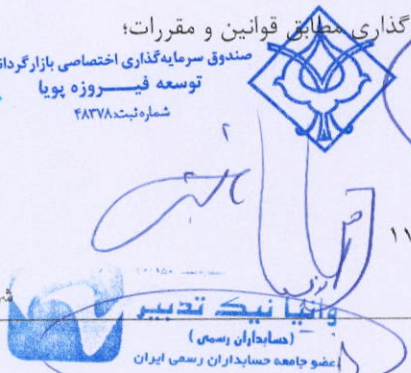 گذاری مطابق قوانین و مقررات؛
صندوق سرمایه‌گذاری اختصاصی بازارگردا
توسعه فیـــروزه پویا
شماره ثبت: ۴۸۳۷۸
۱۷
وانیا نیک تدبیر
(حسابداران رسمی)
عضو جامعه حسابداران رسمی ایران